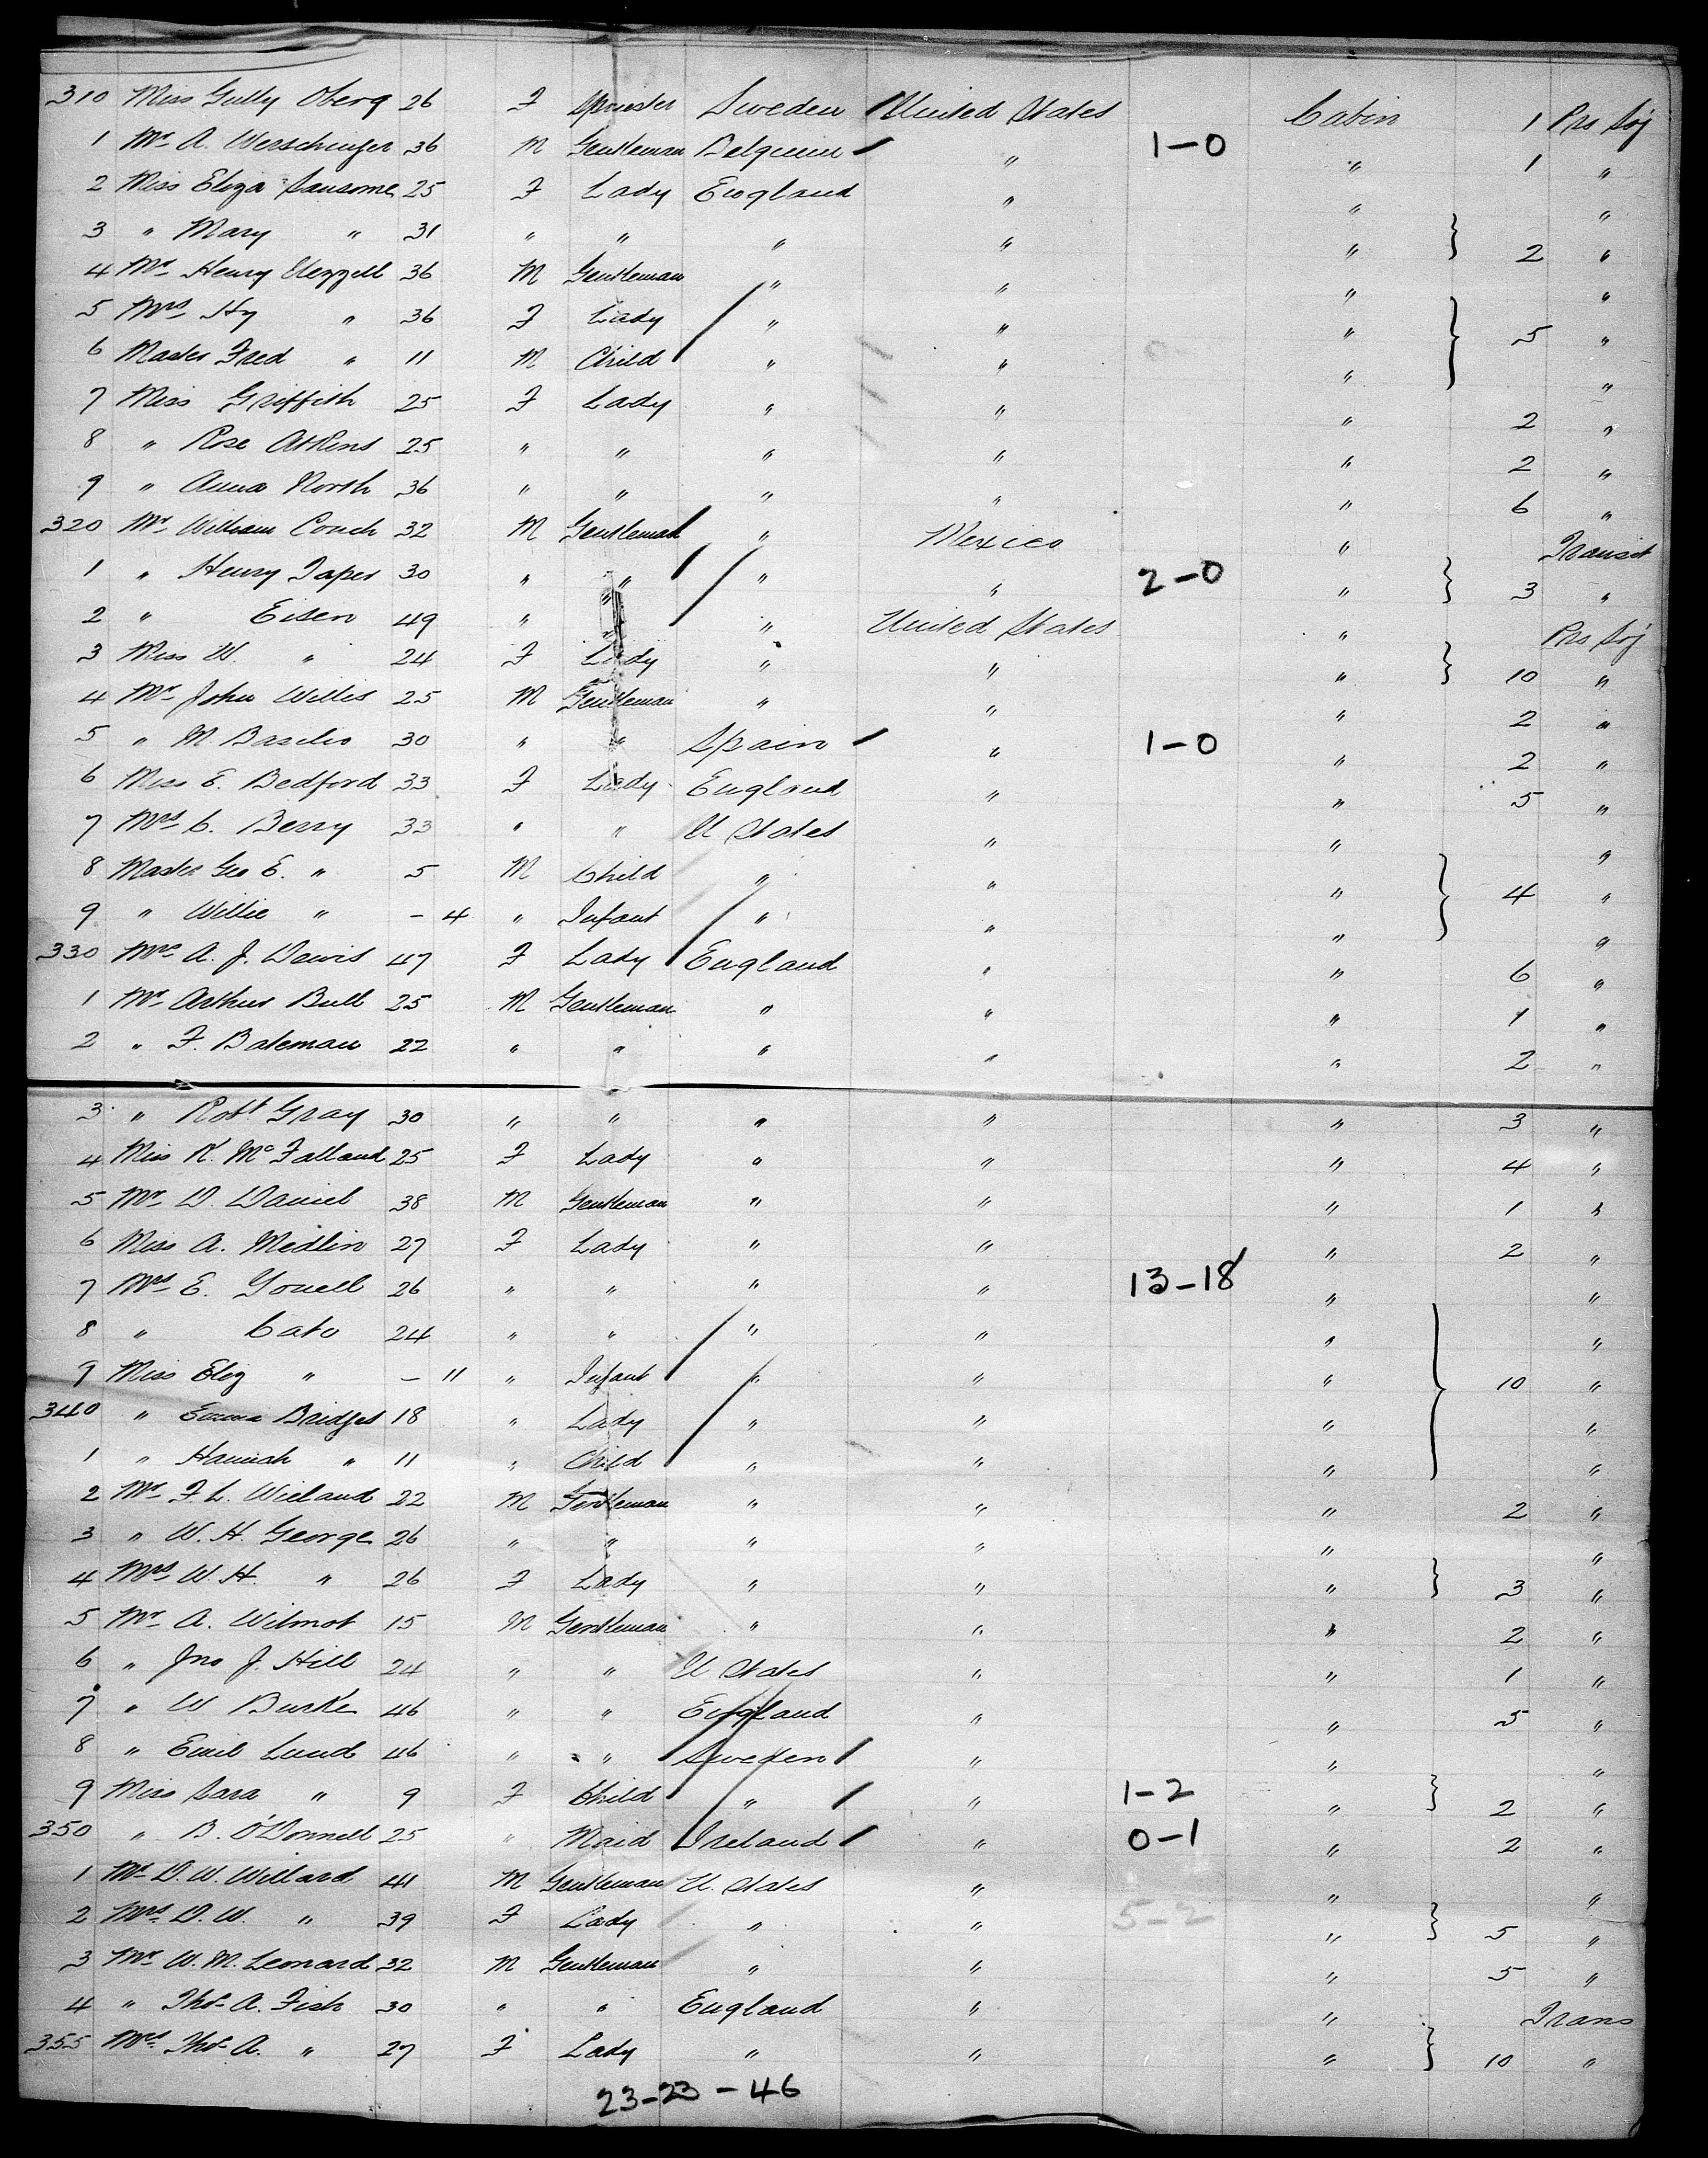 310 Miss Gully Oberg 26 F Spinster Sweden United States Cabin 1 Pro Soj
1 Mr A. Werschinger 36 M Gentleman Belgium " 1-0 " 1 "
2 Miss Eliza Sansome 25 F Lady England " " "
3 " Mary " 31 " " " " " } 2 "
4 Mr Henry 36 M Gentleman " " " "
5 Mrs Hy " 36 F Lady " " " } 5 "
6 Master Fred " 11 M Child " " " "
7 Miss Griffith 25 F Lady " " " 2 "
8 " Rose Atkins 25 " " " " " 2 "
9 " Anna North 36 " " " " " 6 "
320 Mr William Couch 32 M Gentleman " Mexico " Transit
1 " Henry Taper 30 " " " " 2-0 " } 3 "
2 " Eisen 49 " " " United States " Pro Soj
3 Miss W. " 24 F Lady " " " } 10 "
4 Mr John Willis 25 M Gentleman " " " 2 "
5 " M Basilio 30 " " Spain " 1-0 " 2 "
6 Miss E. Bedford 33 F Lady England " " 5 "
7 Mrs C. Berry 33 " " U States " " "
8 Master Geo E. " 5 M Child " " " } 4 "
9 " Willie " - 4 " Infant " " " "
330 Mrs A. J. Davis 47 F Lady England " " 6 "
1 Mr Arthur Bull 25 M Gentleman " " " 1 "
2 " F. Bateman 22 " " " " " 2 "
3 " Robt Gray 30 " " " " " 3 "
4 Miss K. McFalland 25 F Lady " " " 4 "
5 Mr D. Daniel 38 M Gentleman " " " 1 "
6 Miss A. Medlin 27 F Lady " " " 2 "
7 Mrs E. Gouell 26 " " " " 13-18 " "
8 " Cato 24 " " " " " "
9 Miss Eliz " - 11 " Infant " " " } 10 "
340 " Emma Bridges 18 " Lady " " " "
1 " Hannah " 11 " Child " " " "
2 Mr F. L. Wieland 22 M Gentleman " " " 2 "
3 " W. H. George 26 " " " " " "
4 Mrs W. H. " 26 F Lady " " " } 3 "
5 Mr A. Wilmot 15 M Gentleman " " " 2 "
6 " Jno J. Hill 24 " " U States " " 1 "
7 " W Burke 46 " " England " " 5 "
8 " Emil Lund 46 " " Sweden " " "
9 Miss Sara " 9 F Child " " 1-2 " } 2 "
350 " B. O'Donnell 25 " Maid Ireland " 0-1 " 2 "
1 Mr D. W. Willard 41 M Gentleman U. States " " "
2 Mrs D. W. " 39 F Lady " " 5-2 " } 5 "
3 Mr W. M. Leonard 32 M Gentleman " " " 5 "
4 " Thos A. Fish 30 " " England " " Trans
355 Mrs Thos A. " 27 F Lady " " " } 10 "
23-23-46